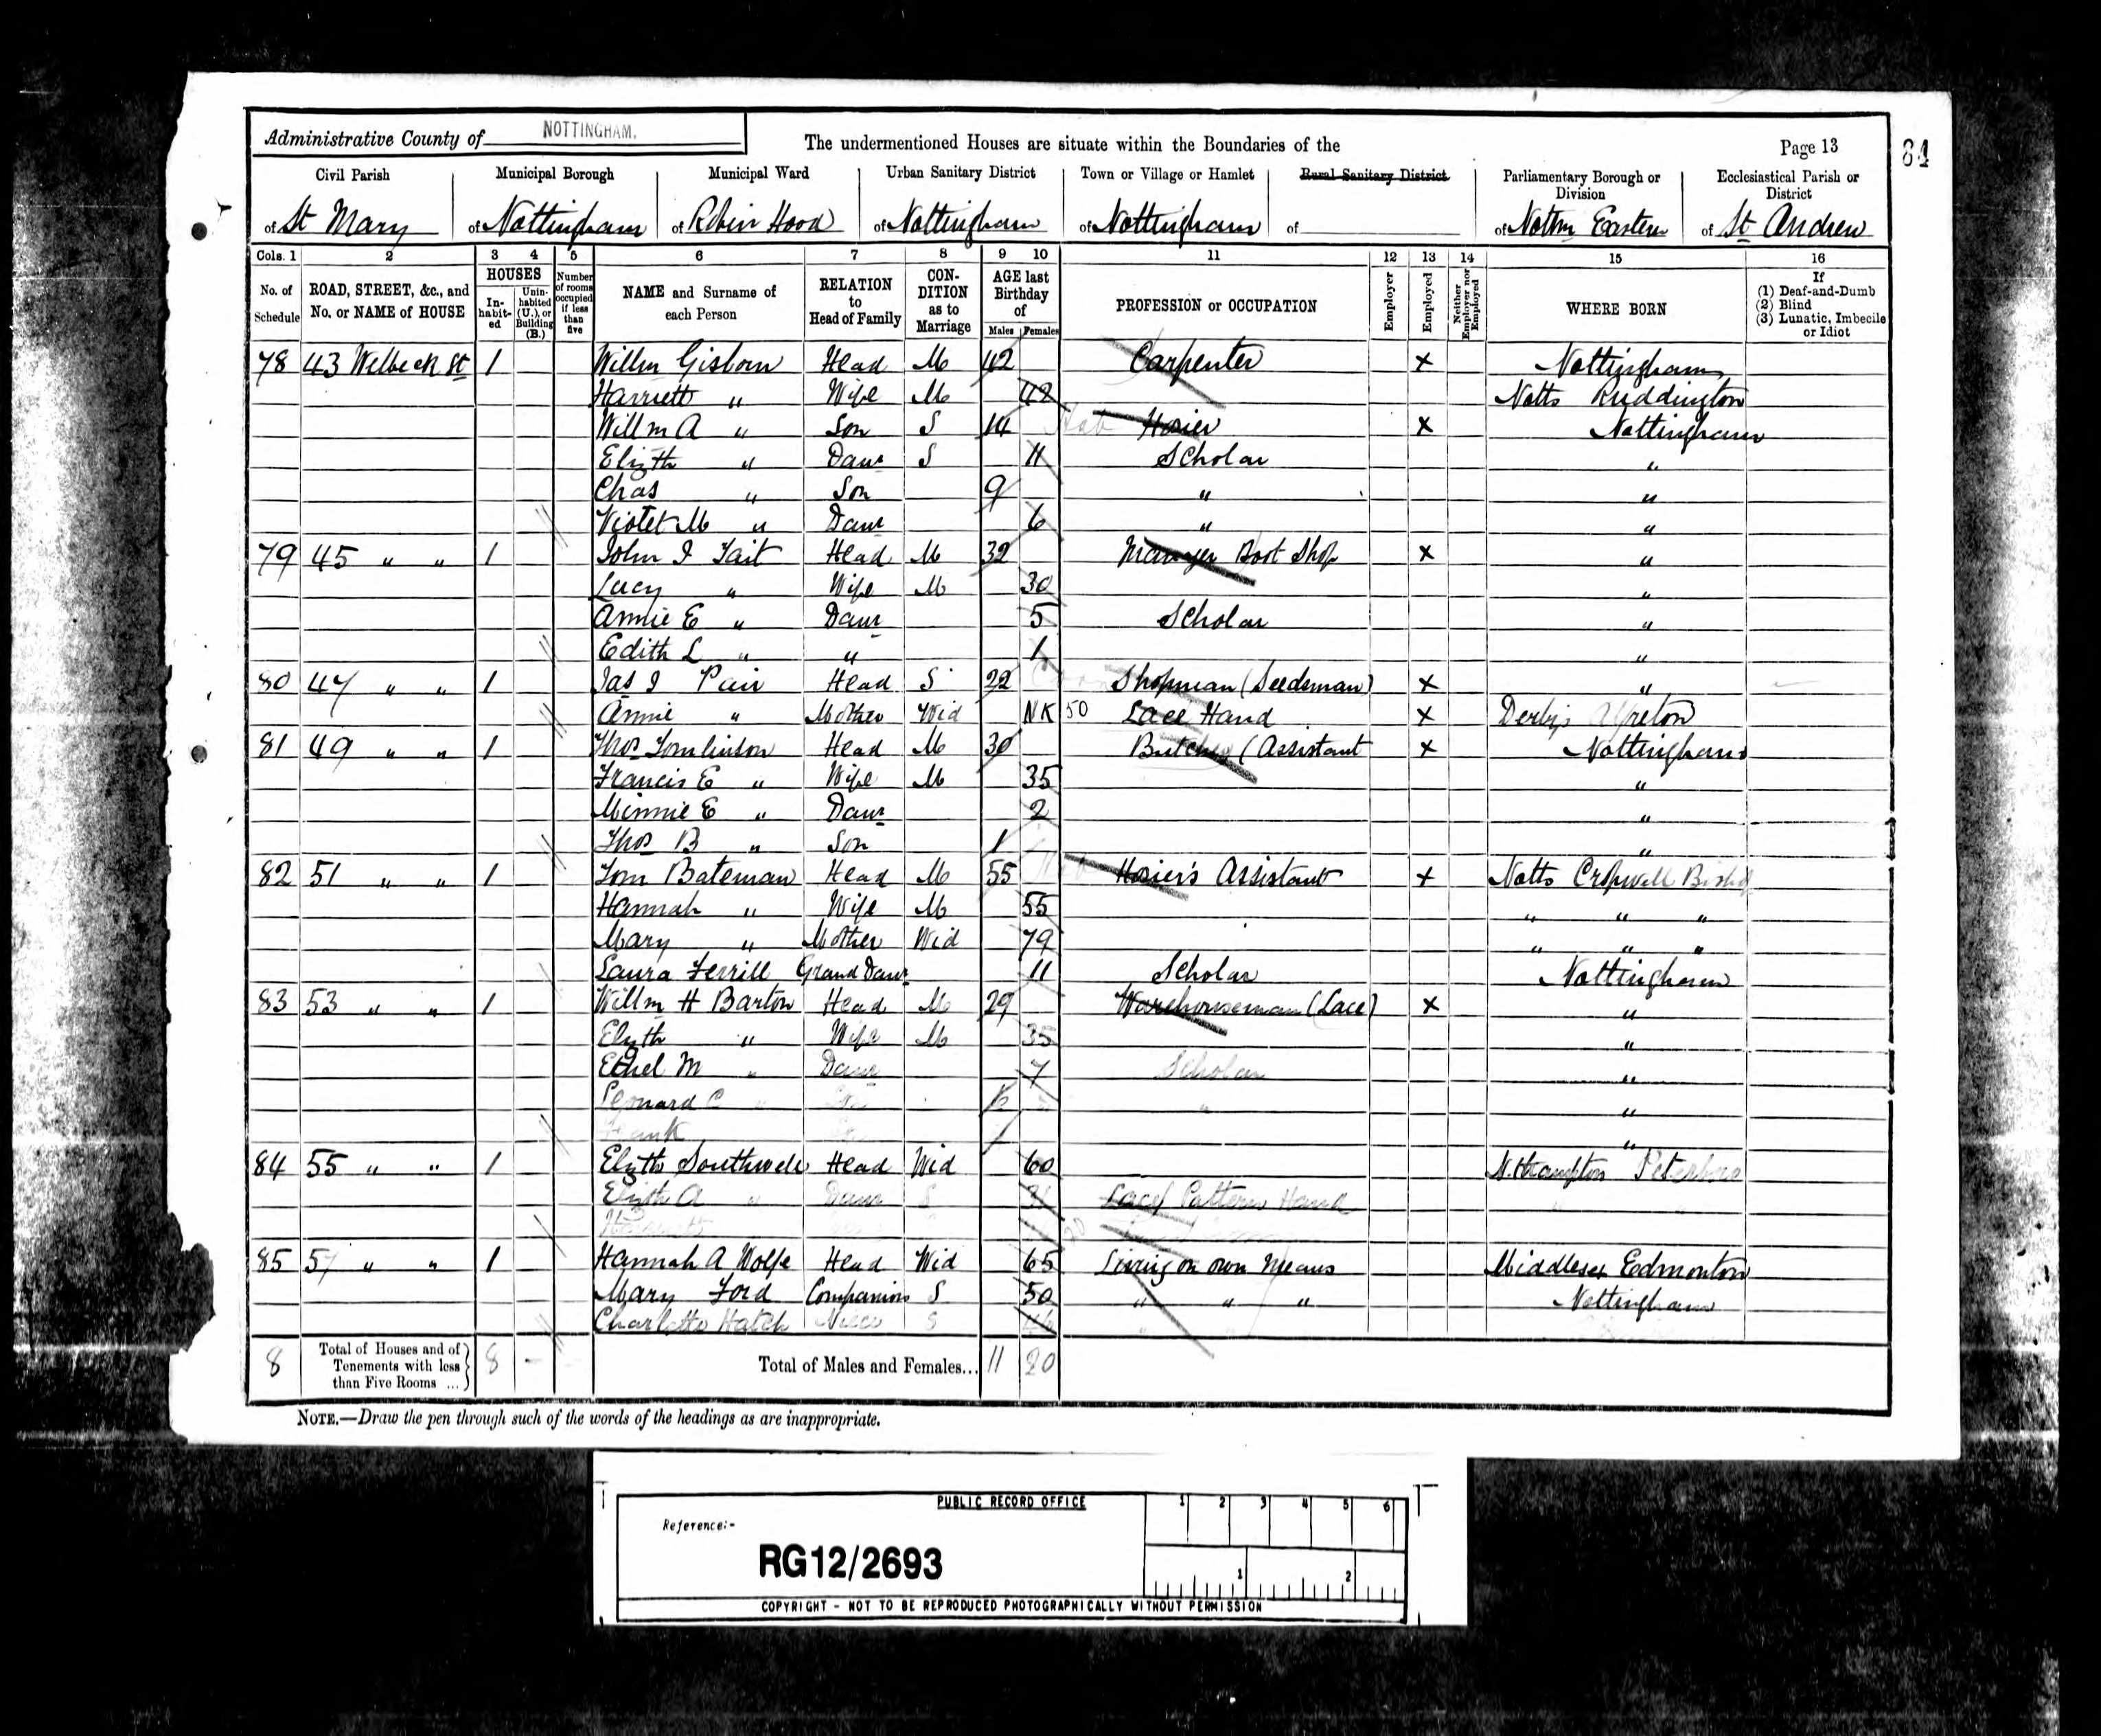 Administrative County of NOTTINGHAM.
The undermentioned Houses are situate within the Boundaries of the
Page 13
84
Civil Parish Municipal Borough Municipal Ward Urban Sanitary District Town or Village or Hamlet Rural Sanitary District Parliamentary Borough or Division Ecclesiastical Parish or District
of St Mary of Nottingham of Robin Hood of Nottingham of Nottingham of of Nottm Eastern of St Andrew
Cols. 1 2 3 4 5 6 7 8 9 10 11 12 13 14 15 16
No. of Schedule ROAD, STREET, &c., and No. or NAME of HOUSE HOUSES In-habit-ed Unin-habited (U.), or Building (B.) Number of rooms occupied if less than five NAME and Surname of each Person RELATION to Head of Family CON-DITION as to Marriage AGE last Birthday of Males Females PROFESSION or OCCUPATION Employer Employed Neither Employer nor Employed WHERE BORN If (1) Deaf-and-Dumb (2) Blind (3) Lunatic, Imbecile or Idiot
78 43 Welbeck St 1 Willm Gisborn Head M 42 Carpenter X Nottingham
Harriett " Wife M 42 Notts Ruddington
Willm A " Son S 14 Hosier X Nottingham
Elizth " Daur S 11 Scholar "
Chas " Son 9 " "
Violet M " Daur 6 " "
79 45 " " 1 John I Tait Head M 32 Manager Boot Shop X "
Lucy " Wife M 30 "
Annie E " Daur 5 Scholar "
Edith L " " 1 "
80 47 " " 1 Jas I Pair Head S 22 Shopman (Seedsman) X "
Annie " Mother Wid NK 50 Lace Hand X Derbys Alfreton
81 49 " " 1 Thos Tomlinson Head M 30 Butcher (Assistant X Nottingham
Francis E " Wife M 35 "
Minnie E " Daur 2 "
Thos B " Son 1 "
82 51 " " 1 Tom Bateman Head M 55 Hosier's Assistant X Notts Cropwell Bishop
Hannah " Wife M 55 " " "
Mary " Mother Wid 79 " " "
Laura Terrill Grand Daur 11 Scholar Nottingham
83 53 " " 1 Willm H Barton Head M 29 Warehouseman (Lace) X "
Elizth " Wife M 35 "
Ethel M " Daur 7 Scholar "
Leonard C " "  "
Frank 1 "
84 55 " " 1 Elizth Southwell Head Wid 60 N.thampton Peterboro
Elizth A " Daur S Lace Pattern Hand
85 57 " " 1 Hannah A Wolfe Head Wid 65 Living on own Means Middlesex Edmonton
Mary Ford Companion S 50 " " " Nottingham
Charlotte Hatch Niece S
8 Total of Houses and of Tenements with less than Five Rooms ... 8 - Total of Males and Females... 11 20
NOTE.—Draw the pen through such of the words of the headings as are inappropriate.
PUBLIC RECORD OFFICE 1 2 3 4 5 6
Reference:-
RG12/2693 1 2
COPYRIGHT - NOT TO BE REPRODUCED PHOTOGRAPHICALLY WITHOUT PERMISSION